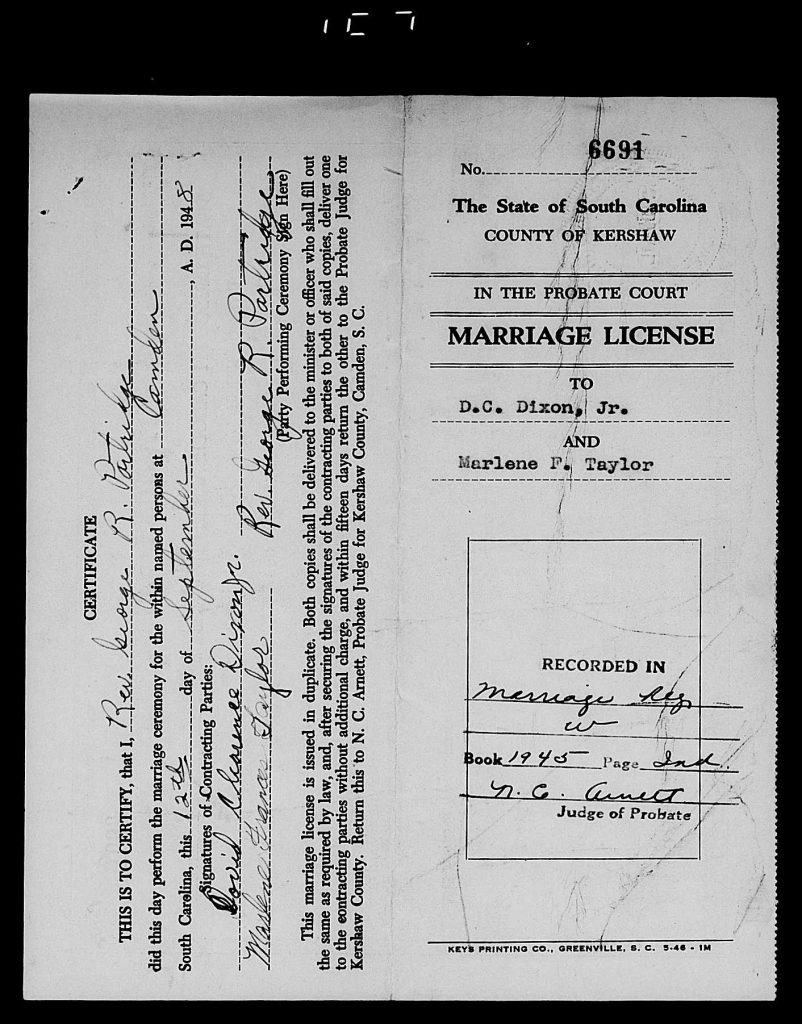 CERTIFICATE
THIS IS TO CERTIFY, that I, Rev. George R. Partridge
did this day perform the marriage ceremony for the within named persons at Camden
South Carolina, this 12th day of September, A. D. 1948
Signatures of Contracting Parties:
David Clarence Dixon Jr.
Marlene Frances Taylor
Rev. George R. Partridge
(Party Performing Ceremony Sign Here)
This marriage license is issued in duplicate. Both copies shall be delivered to the minister or officer who shall fill out
the same as required by law, and, after securing the signatures of the contracting parties to both of said copies, deliver one
to the contracting parties without additional charge, and within fifteen days return the other to the Probate Judge for
Kershaw County. Return this to N. C. Arnett, Probate Judge for Kershaw County, Camden, S. C.
No. 6691
The State of South Carolina
COUNTY OF KERSHAW
IN THE PROBATE COURT
MARRIAGE LICENSE
TO
D.C. Dixon, Jr.
AND
Marlene F. Taylor
RECORDED IN
Marriage Reg
W
Book 1945 Page Ind.
N. C. Arnett
Judge of Probate
KEYS PRINTING CO., GREENVILLE, S. C. 5-46 - 1M